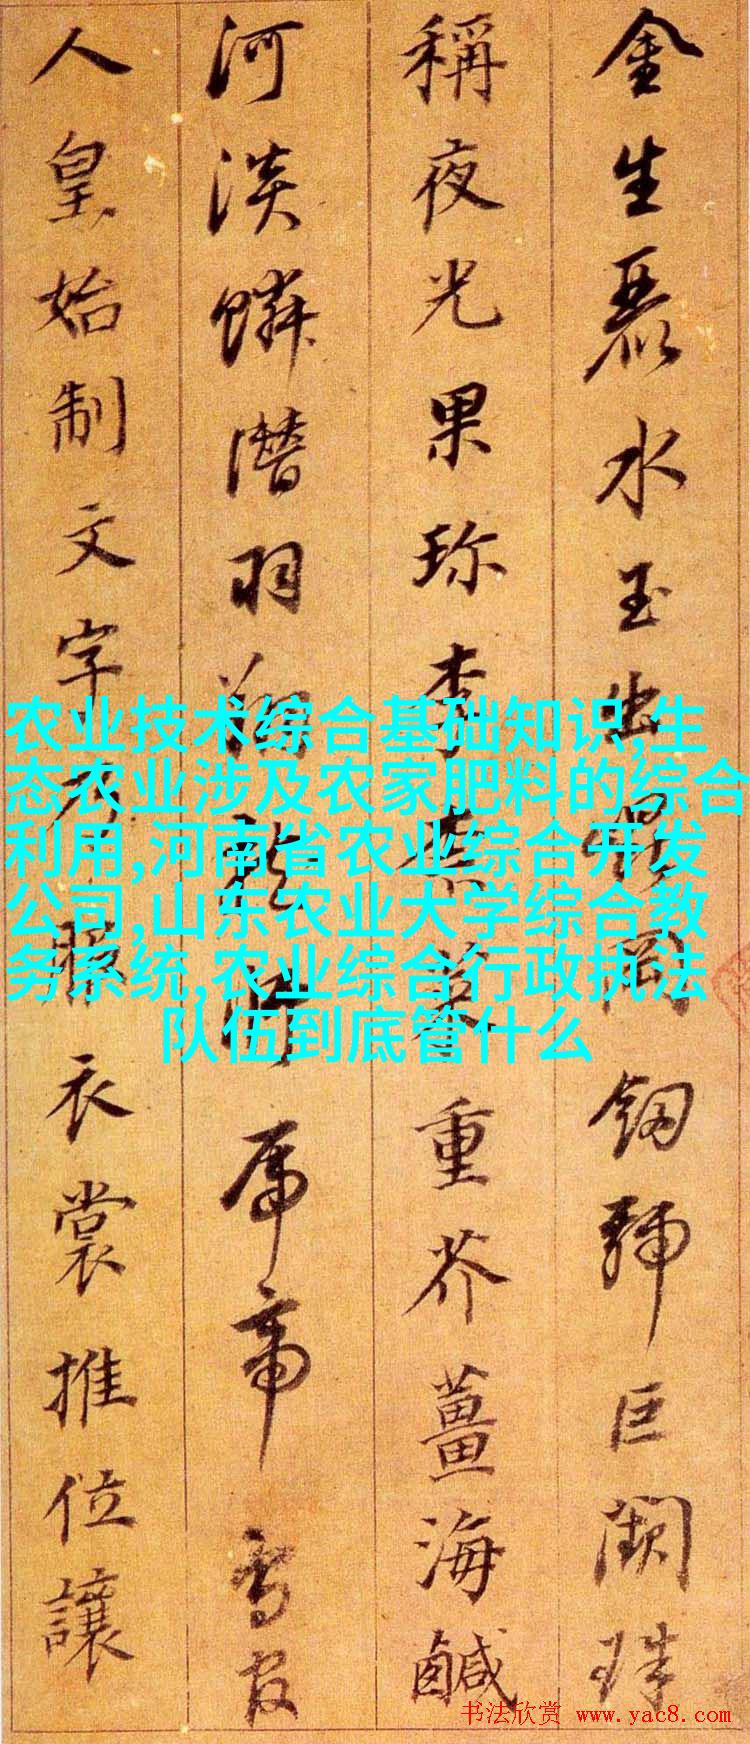 金生麗水玉出崑岡劍號巨闕珠
稱夜光果珍李柰菜重芥薑海鹹
河淡鱗潛羽翔龍師帝鳥官
人皇始制文字乃服衣裳推位讓
农业技术综合基础知识,生
态农业涉及农家肥料的综合
利用,河南省农业综合开发
公司,山东农业大学综合教
务系统,农业综合行政执法
队伍到底管什么
书法欣赏 www.yac8.com